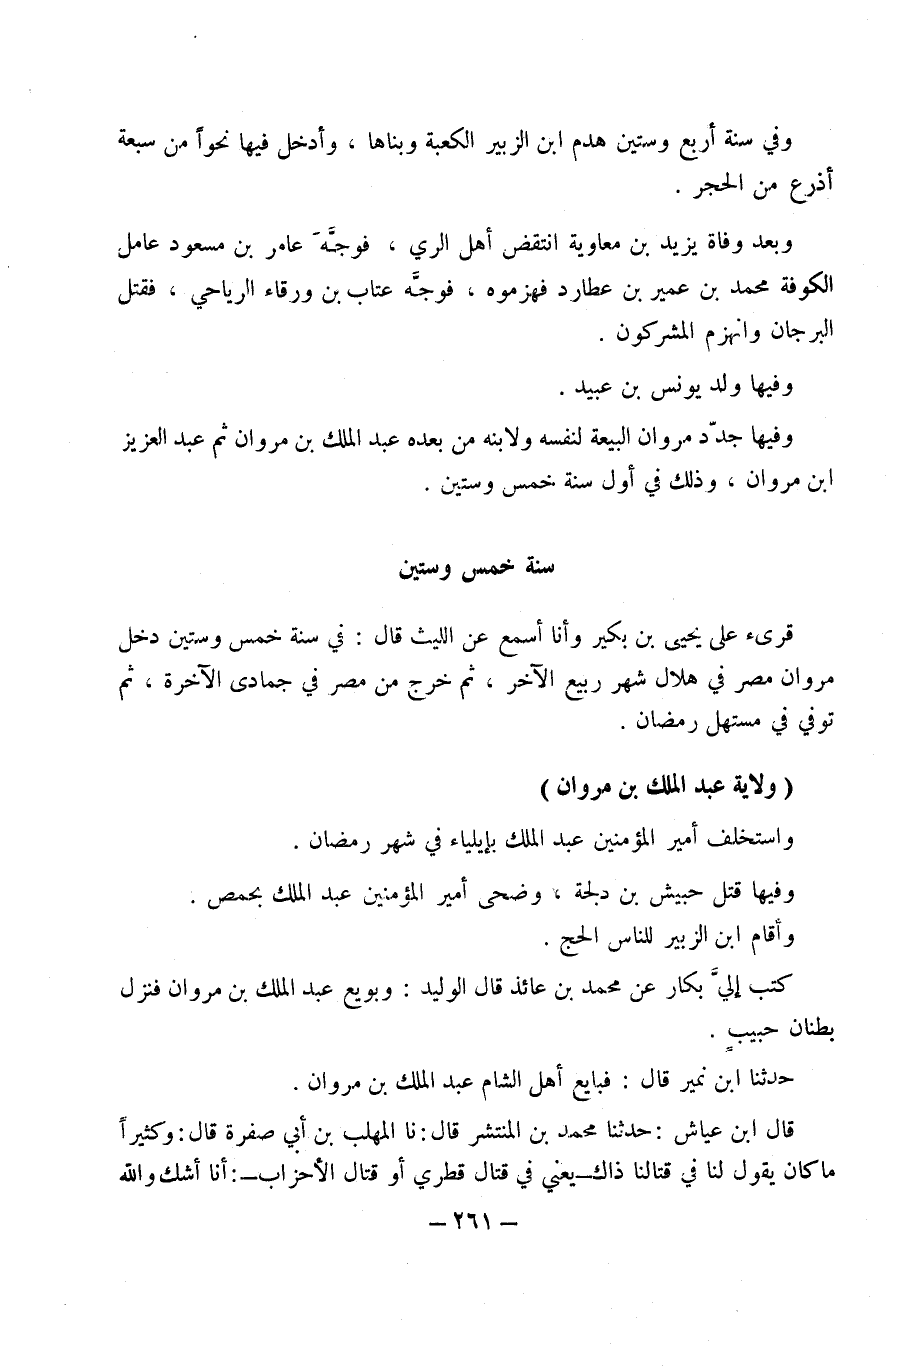 وفي سنة أربع وستين هدم ابن الزبير الكعبة وبناها ، وأدخل فيها نحواً من سبعة
أذرع من الحجر .
وبعد وفاة يزيد بن معاوية انتقض أهل الري ، فوجَّهَ عامر بن مسعود عامل
الكوفة محمد بن عمير بن عطارد فهزموه ، فوجَّه عتاب بن ورقاء الرياحي ، فقتل
البرجان وانهزم المشركون .
وفيها ولد يونس بن عبيد .
وفيها جدّد مروان البيعة لنفسه ولابنه من بعده عبد الملك بن مروان ثم عبد العزيز
ابن مروان ، وذلك في أول سنة خمس وستين .
سنة خمس وستين
قرىء على يحيى بن بكير وأنا أسمع عن الليث قال : في سنة خمس وستين دخل
مروان مصر في هلال شهر ربيع الآخر ، ثم خرج من مصر في جمادى الآخرة ، ثم
توفي في مستهل رمضان .
( ولاية عبد الملك بن مروان )
واستخلف أمير المؤمنين عبد الملك بإيلياء في شهر رمضان .
وفيها قتل حبيش بن دلجة ، وضحى أمير المؤمنين عبد الملك بحمص .
وأقام ابن الزبير للناس الحج .
كتب إليَّ بكار عن محمد بن عائذ قال الوليد : وبويع عبد الملك بن مروان فنزل
بطنان حبيبٍ .
حدثنا ابن نمير قال : فبايع أهل الشام عبد الملك بن مروان .
قال ابن عياش :حدثنا محمد بن المنتشر قال:نا المهلب بن أبي صفرة قال:وكثيراً
ماكان يقول لنا في قتالنا ذاك–يعني في قتال قطري أو قتال الأحزاب–:أنا أشك والله
– ٢٦١ –